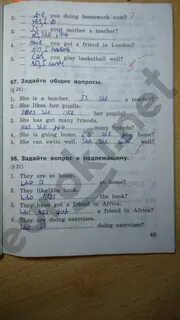 2. — you doing homework now?
yes, I do
3. — Is your mother a teacher?
No,
4. — Have you got a friend in London?
No, I haven't
5. — Can you play basketball well?
No, I can't
97. Задайте общие вопросы.
(§ 26)
1. She is a teacher. Is she a teacher?
2. She likes her pupils.
Does she like her pupils?
3. She has got many friends.
Has she got many friends?
4. She is going home. Is she going home?
5. She can swim well. Can she swim well?
98. Задайте вопрос к подлежащему.
(§ 31)
1. They are at home.
Who is at home?
2. They like the book.
Who likes the book?
3. They have got a friend in Africa.
Who has got a friend in Africa?
4. They are doing exercises.
Who is doing exercises?
49